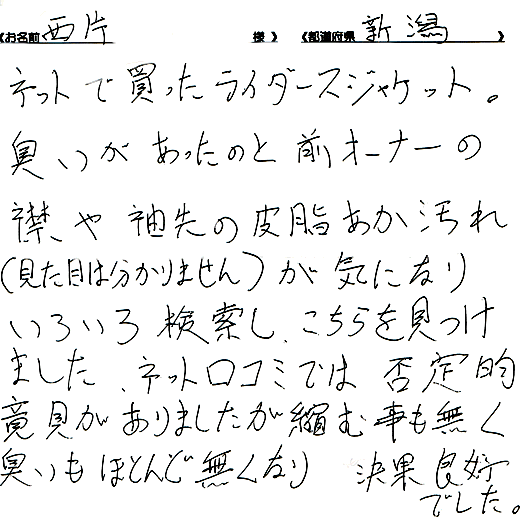 《お名前 西片 様》 《都道府県 新潟 》
ネットで買ったライダースジャケット。
臭いがあったのと前オーナーの
襟や袖先の皮脂あか汚れ
(見た目は分かりません)が気になり
いろいろ検索し、こちらを見つけ
ました、ネット口コミでは否定的
意見がありましたが縮む事も無く
臭いもほとんど無くなり 決果良好
でした。